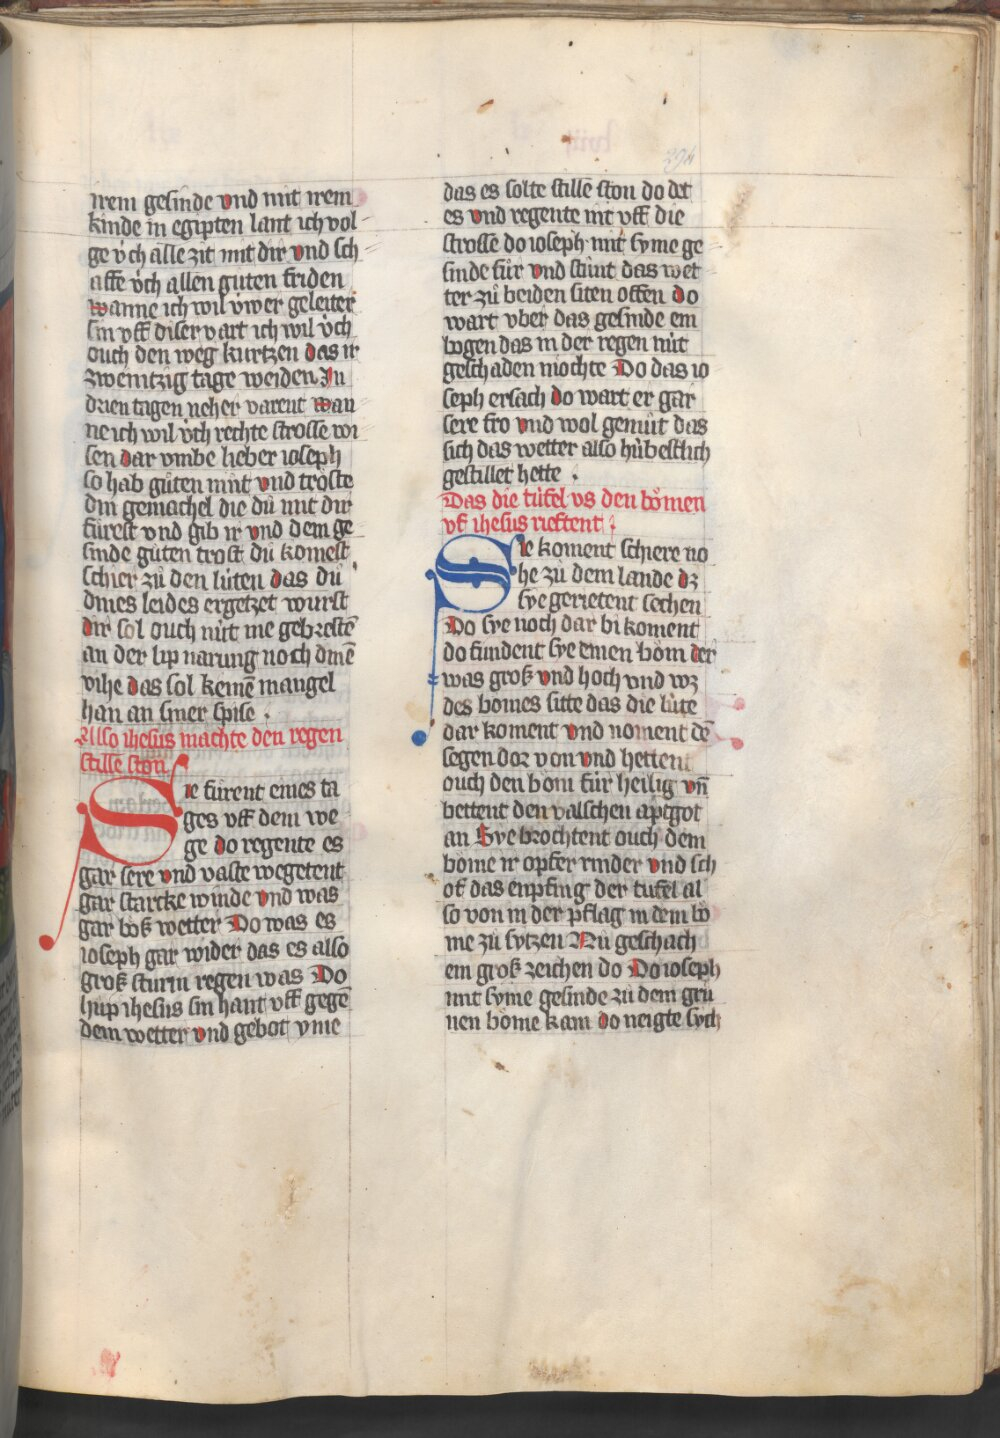 irem gesinde vnd mit irem
kinde in egipten lant ich vol
ge v̇ch alle zit mit dir vnd sch
affe v̇ch allen guten friden
wanne ich wil v̇wer geleiter
sin vff diser vart ich wil v̇ch
ouch den weg kurtzen das ir
zwenitzig tage weiden In
drien tagen neher varent wan
ne ich wil v̇ch rechte strosse wi
sen dar vmbe lieber ioseph
so hab gůten můt vnd trȯste
din gemachel die dů mit dir
fůrest vnd gib ir vnd dem ge
sinde gůten trost dů komest
schier zů den lůten das dů
dines leides ergetzet wurst
dir sol ouch nůt me gebrestē
an der lip narung noch dinē
vihe das sol keinē mangel
han an siner spise .
Also ihesus machte den regen
stille ston
Sie fůrent eines ta
ges vff dem we
ge do regente es
gar sere vnd vaste wegetent
gar starcke winde vnd was
gar bȯß wetter Do was es
ioseph gar wider das es also
groß sturm regen was Do
hůp ihesus sin hant vff gegē
dem wetter vnd gebot yme
das es solte stille ston do det
es vnd regente nit vff die
strosse do ioseph mit syme ge
sinde fůr vnd stůnt das wet
ter zů beiden siten offen do
wart vber das gesinde ein
bogen das in der regen nůt
geschaden mochte Do das io
seph ersach do wart er gar
sere fro vnd wol gemůt das
sich das wetter also hůbeschlich
gestillet hette .
Das die tůfel vs den bȯmen
vf ihesus rieftent
Sie koment schiere no
he zů dem lande dz
sye gerietent sechen
Do sye noch dar bi koment
do fundent sye einen bȯm der
was groß vnd hoch vnd wz
des bomes sitte das die lůte
dar koment vnd noment dē
segen dor von vnd hettent
ouch den bȯm fůr heilig vn̄
bettent den valschen aptgot
an Sye brochtent ouch dem
bȯme ir opfer rinder vnd sch
of das enpfing der tufel al
so von in der pflag in dem bȯ
me zů sytzen Nů geschach
ein groß zeichen do Do ioseph
mit syme gesinde zů dem grů
nen bȯme kam do neigte sych